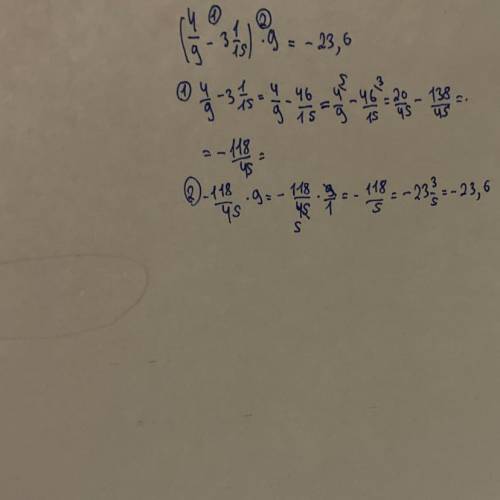 ① ②
(4/9 - 3 1/15) · 9 = - 23,6
① 4/9 - 3 1/15 = 4/9 - 46/15 = 4/9 ⁵ - 46/15 ³ = 20/45 - 138/45 =
= - 118/45 =
② - 118/45 · 9 = - 118/45 · 9/1 = - 118/5 = - 23 3/5 = - 23,6
5